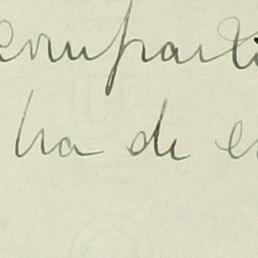 comparti
ha de e